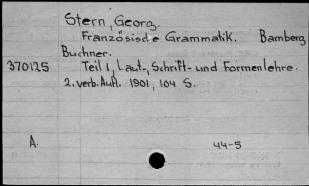 Stern, Georg.
Französische Grammatik. Bamberg,
Buchner.
370125 Teil 1, Laut-, Schrift- und Formenlehre.
2. verb. Aufl. 1901, 104 S.
A. 44-5